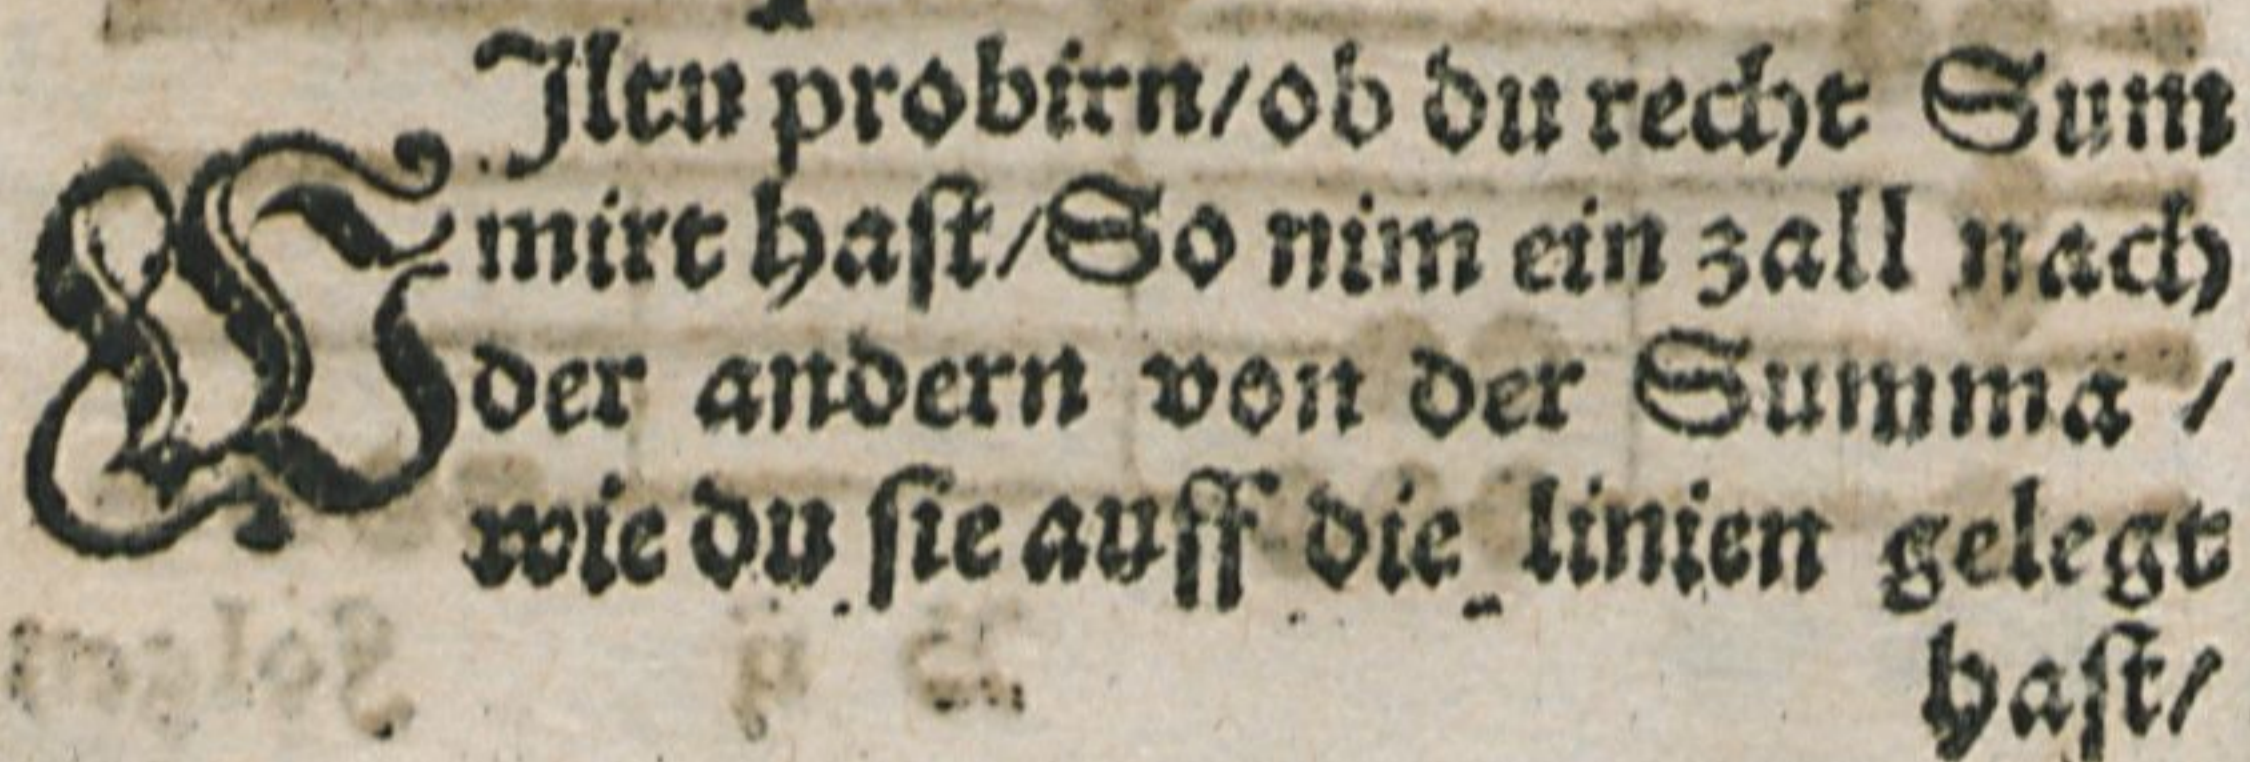 WJltu probirn/ob du recht Sum
mirt haſt/So nim ein zall nach
der andern von der Summa /
wie du ſie auff die linien gelegt
haſt/